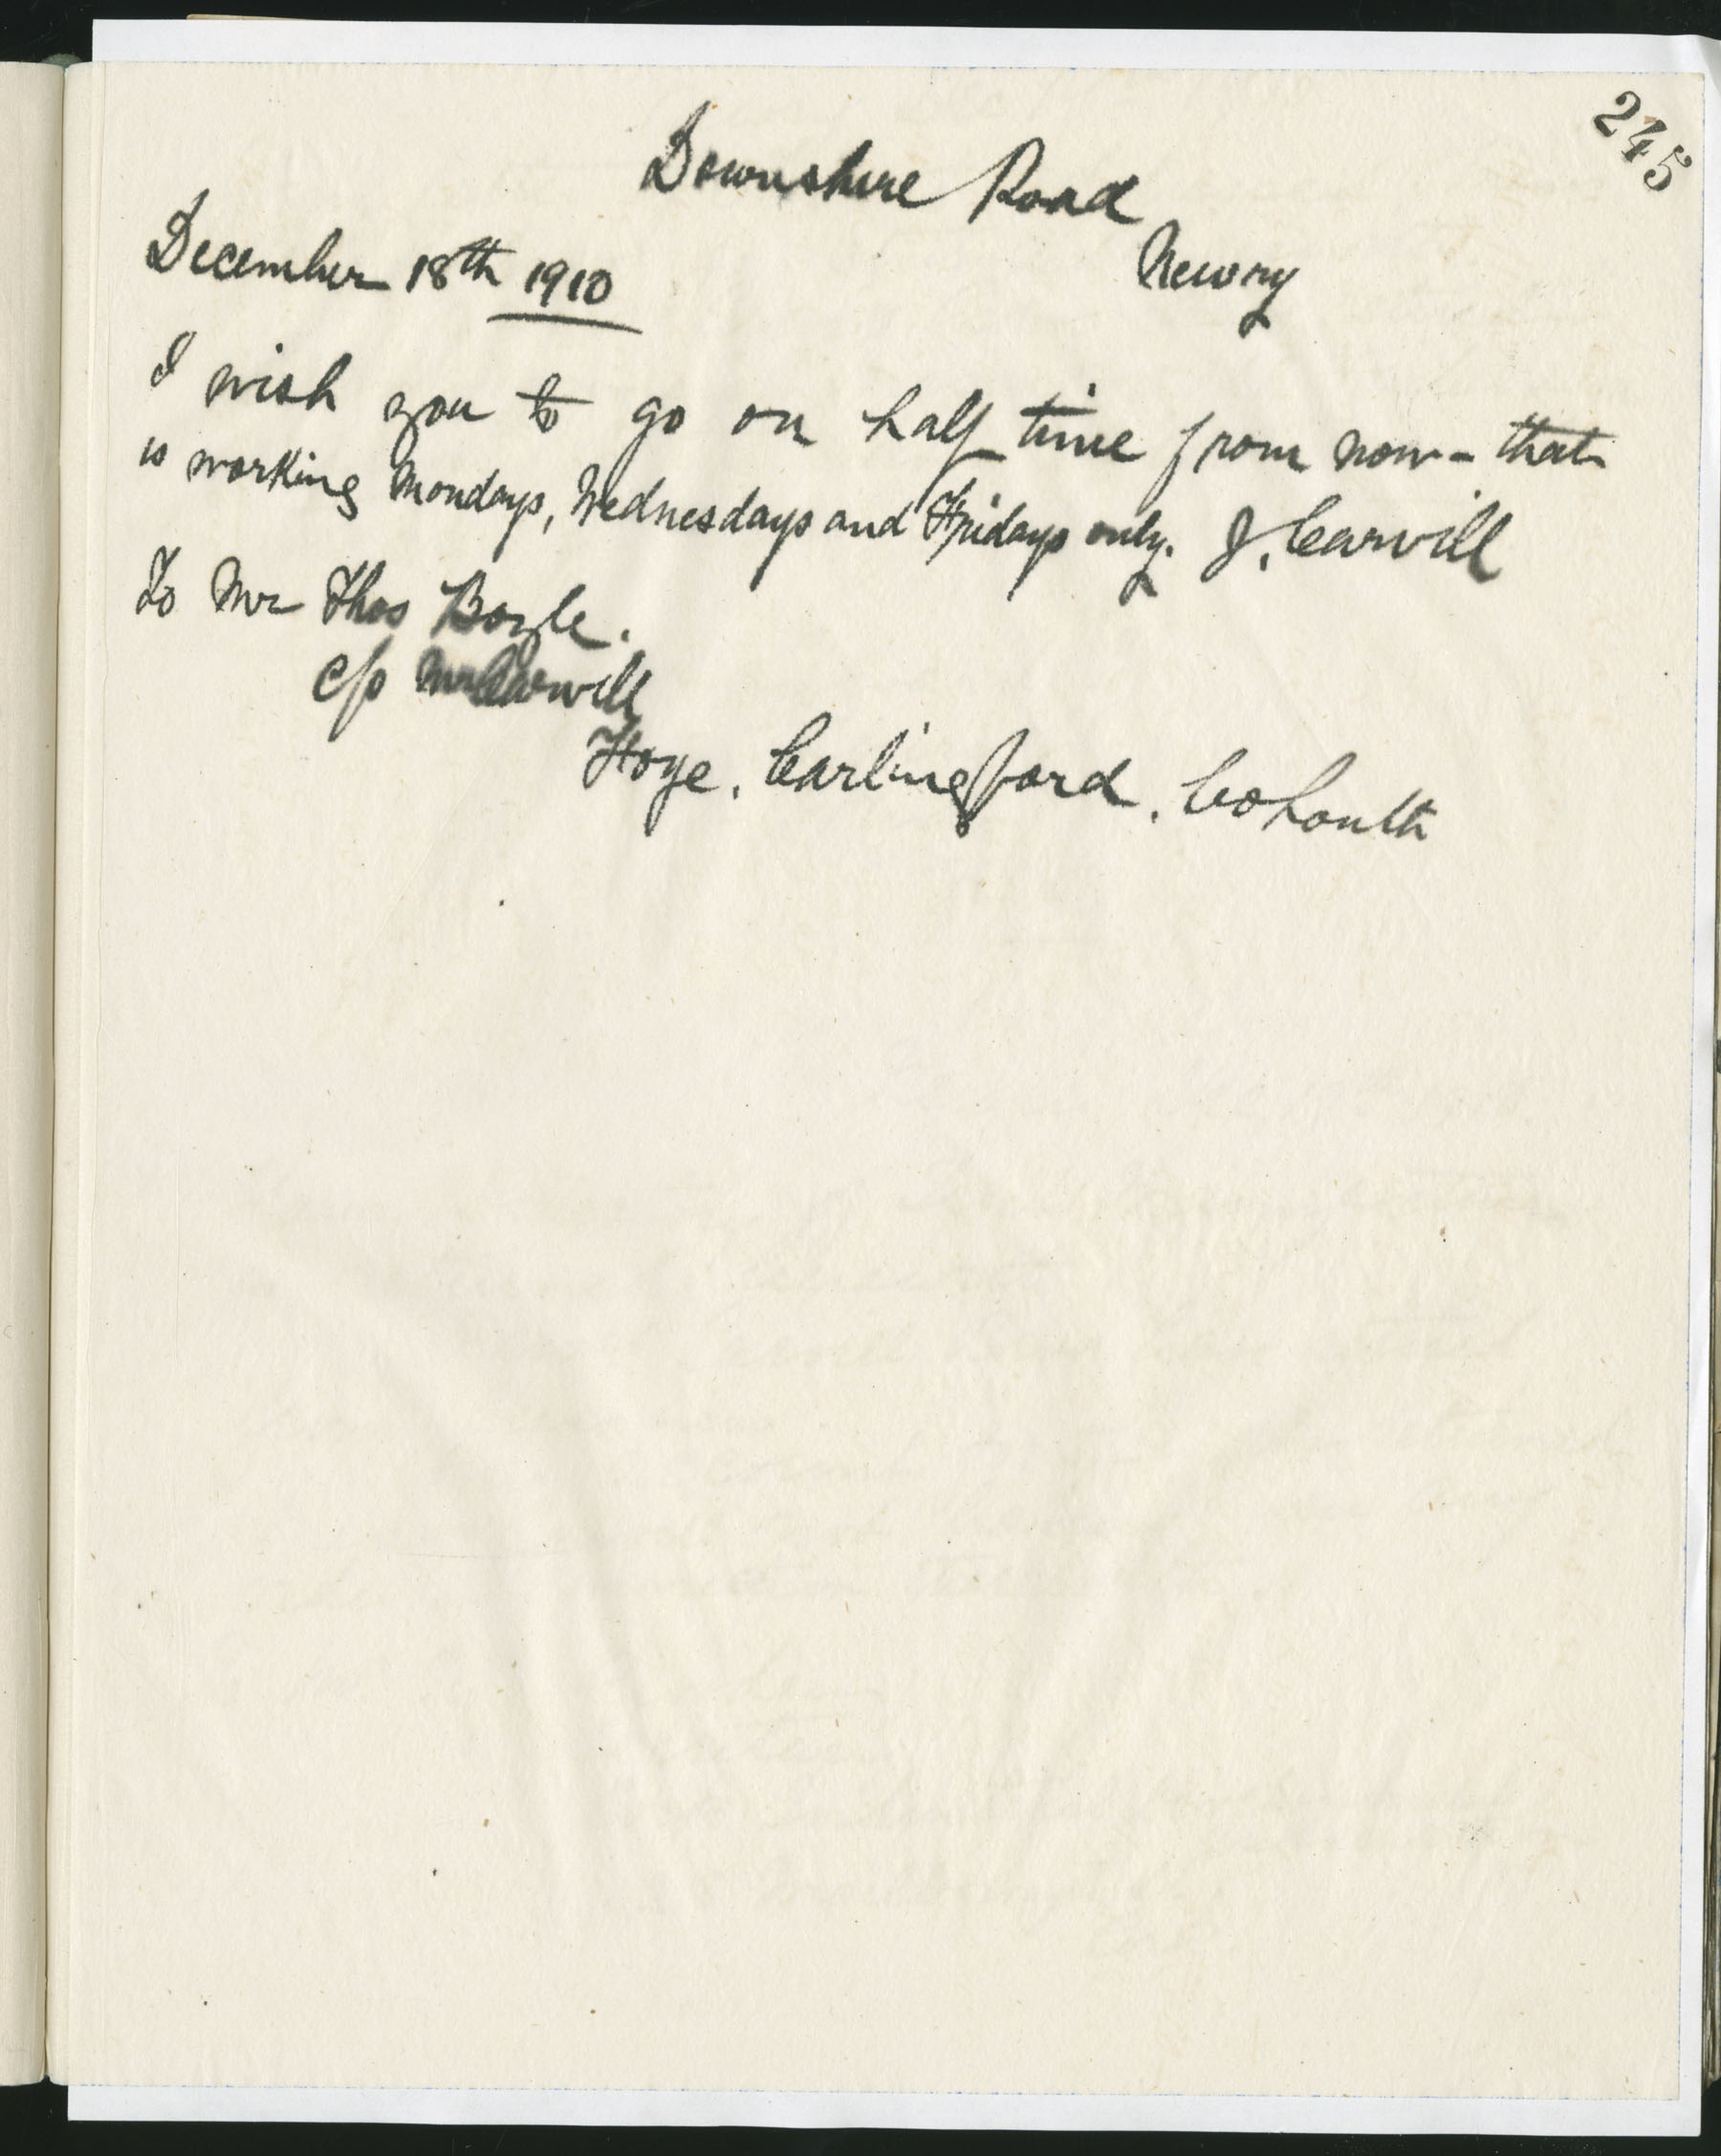 245
Downshire Road
Newry
December 18th 1910
I wish you to go on half time from now - that
is working Mondays, Wednesdays and Fridays only. J. Carvill
To Mr Thos Boyle.
c/o Mr Carvill
Foye, Carlingford, Co Louth